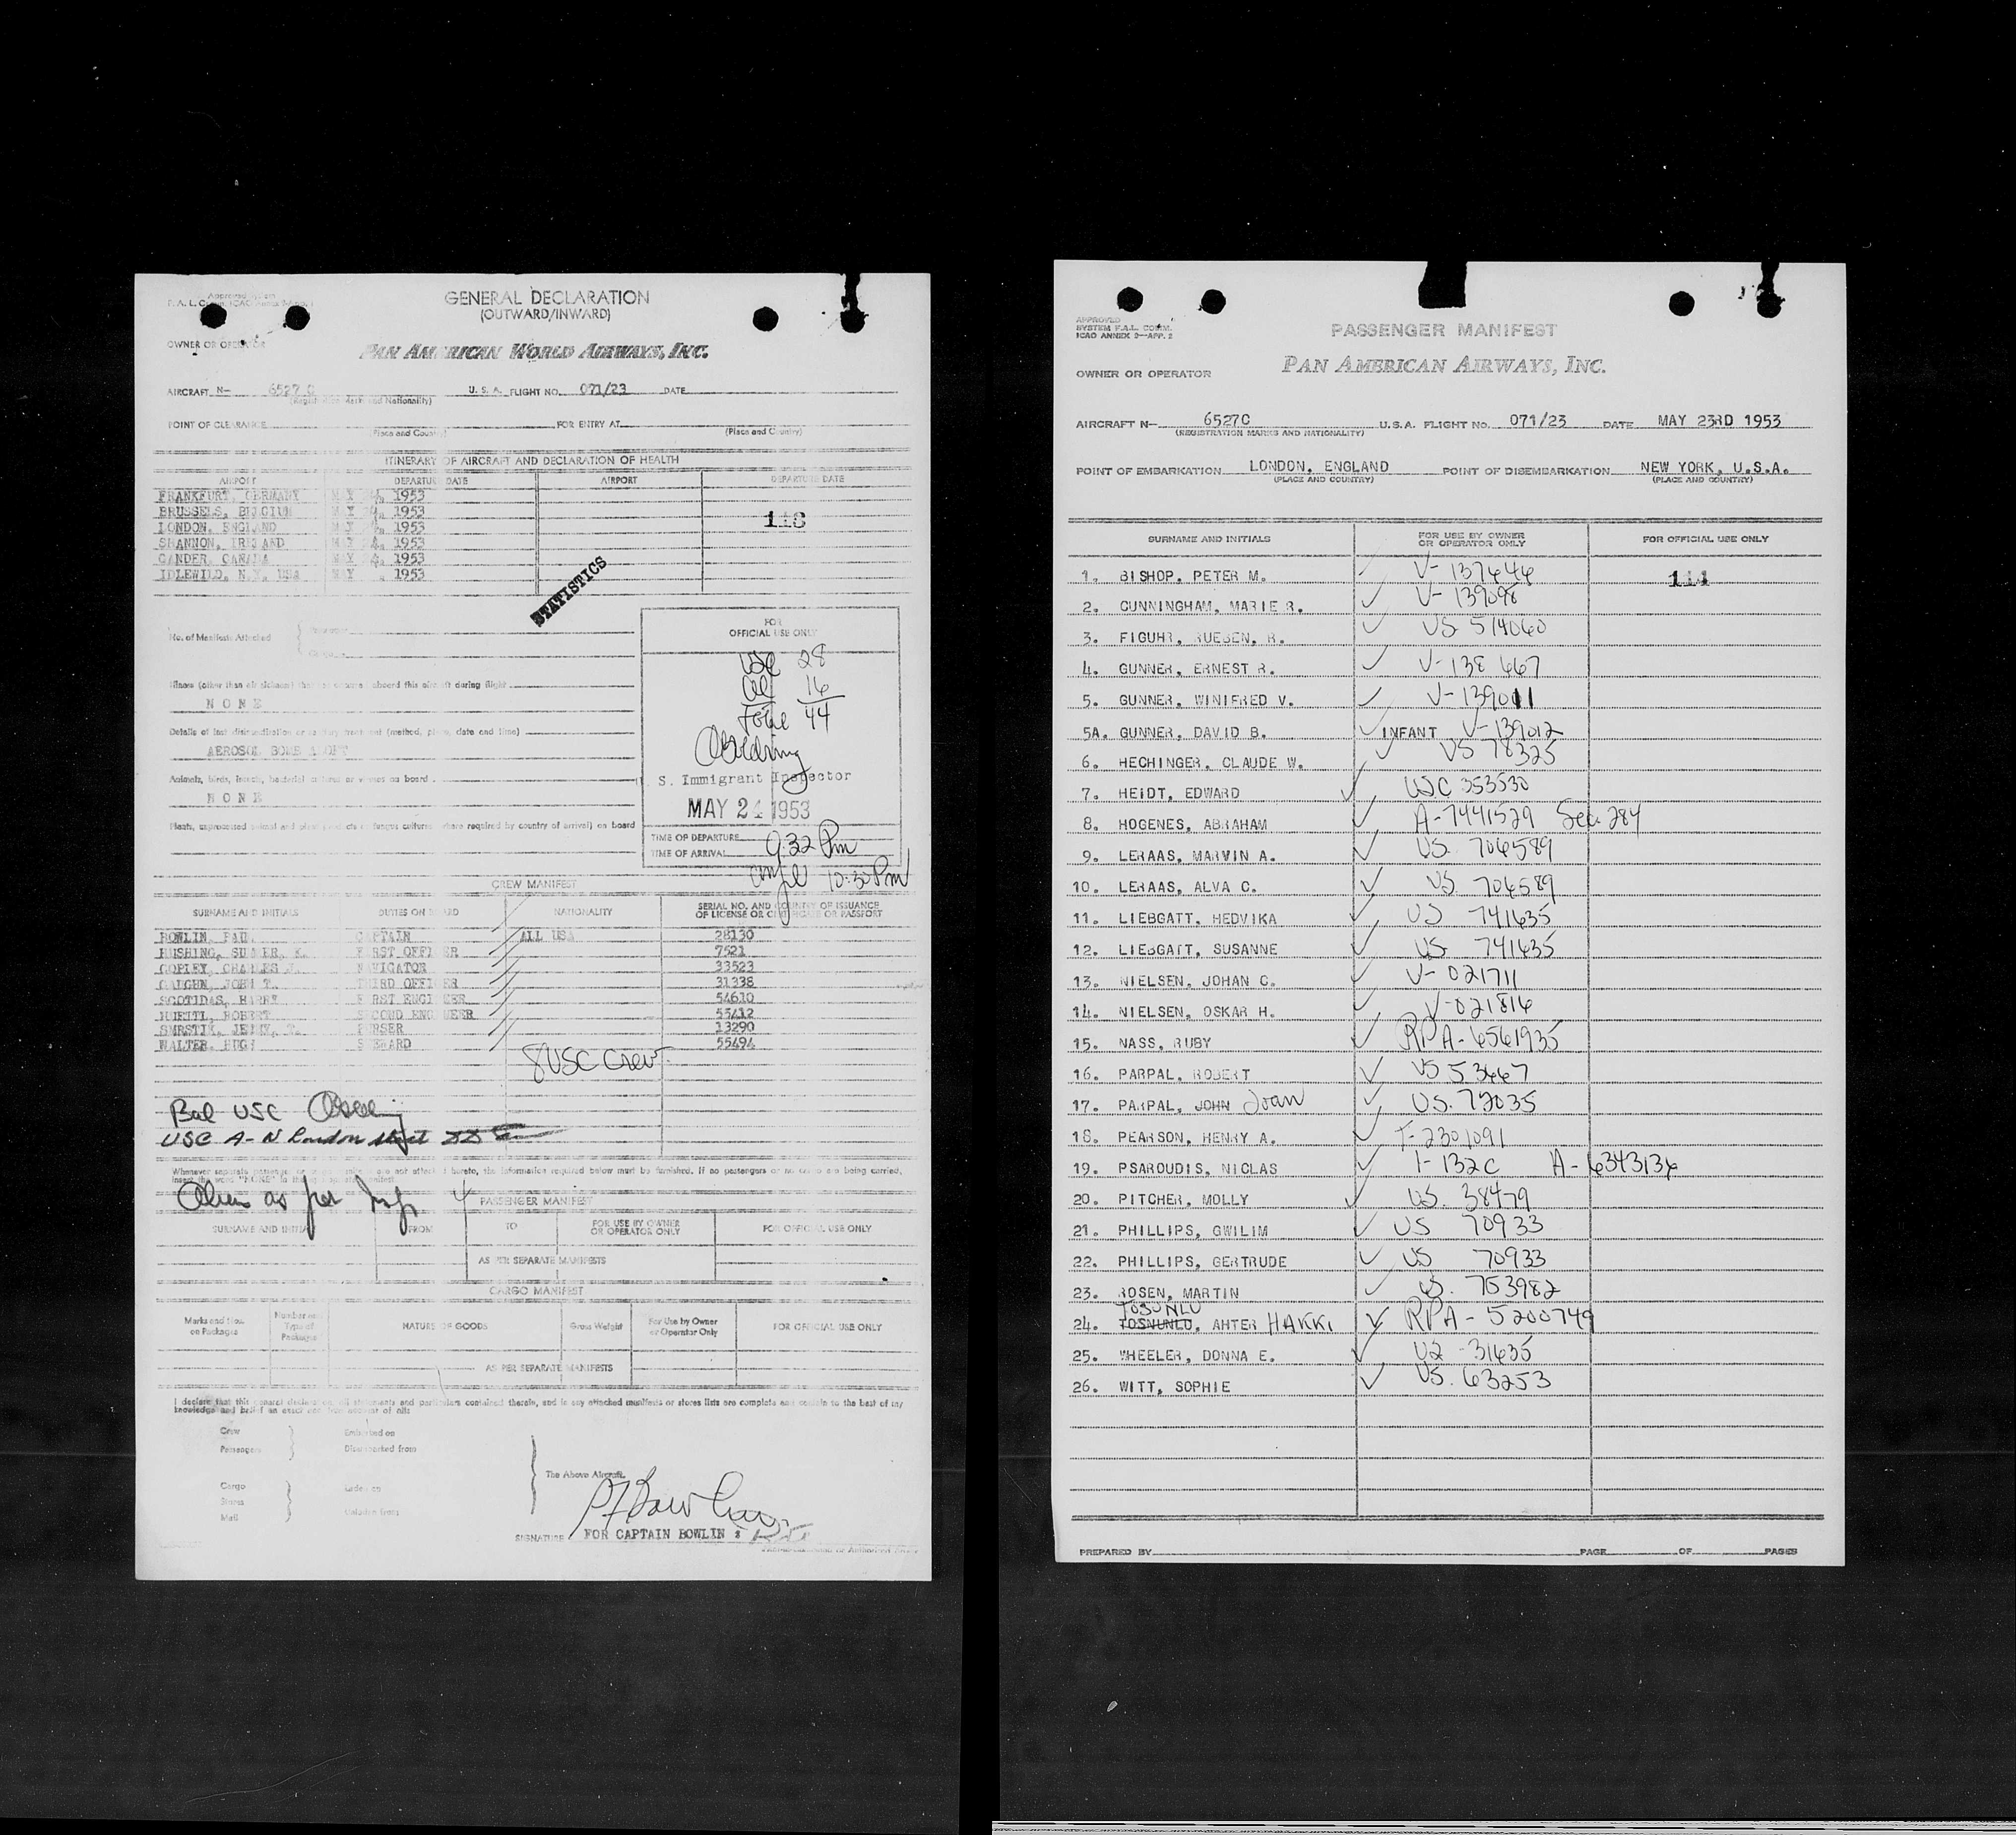 GENERAL DECLARATION
(OUTWARD/INWARD)
OWNER OR OPERATOR
PAN AMERICAN WORLD AIRWAYS, INC.
AIRCRAFT N- 6527 C U. S. A. FLIGHT NO. 071/23 DATE
(Registration Marks and Nationality)
POINT OF CLEARANCE FOR ENTRY AT
(Place and Country) (Place and Country)
ITINERARY OF AIRCRAFT AND DECLARATION OF HEALTH
AIRPORT DEPARTURE DATE AIRPORT DEPARTURE DATE
FRANKFURT, GERMANY MAY 1953
BRUSSELS, BELGIUM MAY 1953
LONDON, ENGLAND MAY 1953
113
SHANNON, IRELAND MAY 1953
GANDER, CANADA MAY 1953
IDLEWILD, N.Y. USA MAY 1953
STATISTICS
No. of Manifests Attached
FOR
OFFICIAL USE ONLY
USC 28
16
Total 44
S. Immigrant Inspector
MAY 24 1953
TIME OF DEPARTURE
TIME OF ARRIVAL 9:32 Pm
10:30 Pm
Illness (other than air sickness) that has occurred aboard this aircraft during flight
NONE
Details of last disinsectization or sanitary treatment (method, place, date and time)
AEROSOL BOMB
Animals, birds, insects, bacterial cultures or viruses on board
NONE
Plants, unprocessed animal and plant products or fungus cultures (where required by country of arrival) on board
CREW MANIFEST
SURNAME AND INITIALS DUTIES ON BOARD NATIONALITY SERIAL NO. AND COUNTRY OF ISSUANCE
OF LICENSE OR CERTIFICATE OR PASSPORT
BOWLIN, PAUL CAPTAIN ALL USA 28130
RUSHING, SUMNER, K. FIRST OFFICER 7521
COPLEY, CHARLES NAVIGATOR 33523
JOHN T. THIRD OFFICER 31338
SCOTIDAS, HARRY FIRST ENGINEER 54610
ROBERT SECOND ENGINEER 55412
PURSER 13290
WALTER, HUGH STEWARD 55494
8 USC Crew
Bal USC
USC A-N London
Whenever separate passenger or cargo manifests are not attached hereto, the information required below must be furnished. If no passengers or no cargo are being carried,
insert the word "NONE" in the appropriate manifest.
PASSENGER MANIFEST
SURNAME AND INITIALS FROM TO FOR USE BY OWNER
OR OPERATOR ONLY FOR OFFICIAL USE ONLY
AS PER SEPARATE MANIFESTS
CARGO MANIFEST
Marks and Nos.
on Packages Number and
Type of
Packages NATURE OF GOODS Gross Weight For Use by Owner
or Operator Only FOR OFFICIAL USE ONLY
AS PER SEPARATE MANIFESTS
I declare that this general declaration, all statements and particulars contained therein, and in any attached manifests or stores lists are complete and contain to the best of my
knowledge and belief an exact and true account of all:
Crew Embarked on
Passengers Disembarked from
The Above Aircraft.
Cargo Laden on
Stores
Mail Unladen from
SIGNATURE FOR CAPTAIN BOWLIN
APPROVED
SYSTEM F.A.L. COMM.
ICAO ANNEX 9-APP. 2
PASSENGER MANIFEST
PAN AMERICAN AIRWAYS, INC.
OWNER OR OPERATOR
AIRCRAFT N- 6527C U.S.A. FLIGHT NO. 071/23 DATE MAY 23RD 1953
(REGISTRATION MARKS AND NATIONALITY)
POINT OF EMBARKATION LONDON, ENGLAND POINT OF DISEMBARKATION NEW YORK, U.S.A.
(PLACE AND COUNTRY) (PLACE AND COUNTRY)
SURNAME AND INITIALS FOR USE BY OWNER
OR OPERATOR ONLY FOR OFFICIAL USE ONLY
1. BISHOP, PETER M. V-137644 114
2. CUNNINGHAM, MARIE R. V-139098
3. FIGUHR, RUEBEN, R. US 514060
4. GUNNER, ERNEST R. V-138 667
5. GUNNER, WINIFRED V. V-139011
5A. GUNNER, DAVID B. INFANT V-139012
6. HECHINGER, CLAUDE W. US 78325
7. HEIDT, EDWARD USC 353530
8. HOGENES, ABRAHAM A-7441529 Sec. 284
9. LERAAS, MARVIN A. US 706589
10. LERAAS, ALVA C. US. 706589
11. LIEBGATT, HEDVIKA US 741635
12. LIEBGATT, SUSANNE US 741635
13. NIELSEN, JOHAN C. V-021711
14. NIELSEN, OSKAR H. V-021816
15. NASS, RUBY RPA-6561935
16. PARPAL, ROBERT US 53667
17. PARPAL, JOHN Joan US. 79035
18. PEARSON, HENRY A. T-2301091
19. PSAROUDIS, NICLAS I-132C A-6343136
20. PITCHER, MOLLY US. 38479
21. PHILLIPS, GWILIM US 70933
22. PHILLIPS, GERTRUDE US 70933
23. ROSEN, MARTIN US. 753982
TOSUNLU
24. TOSNUNLU, AHTER HAKKI RPA-5200749
25. WHEELER, DONNA E. US -31635
26. WITT, SOPHIE US. 63253
PREPARED BY PAGE OF PAGES